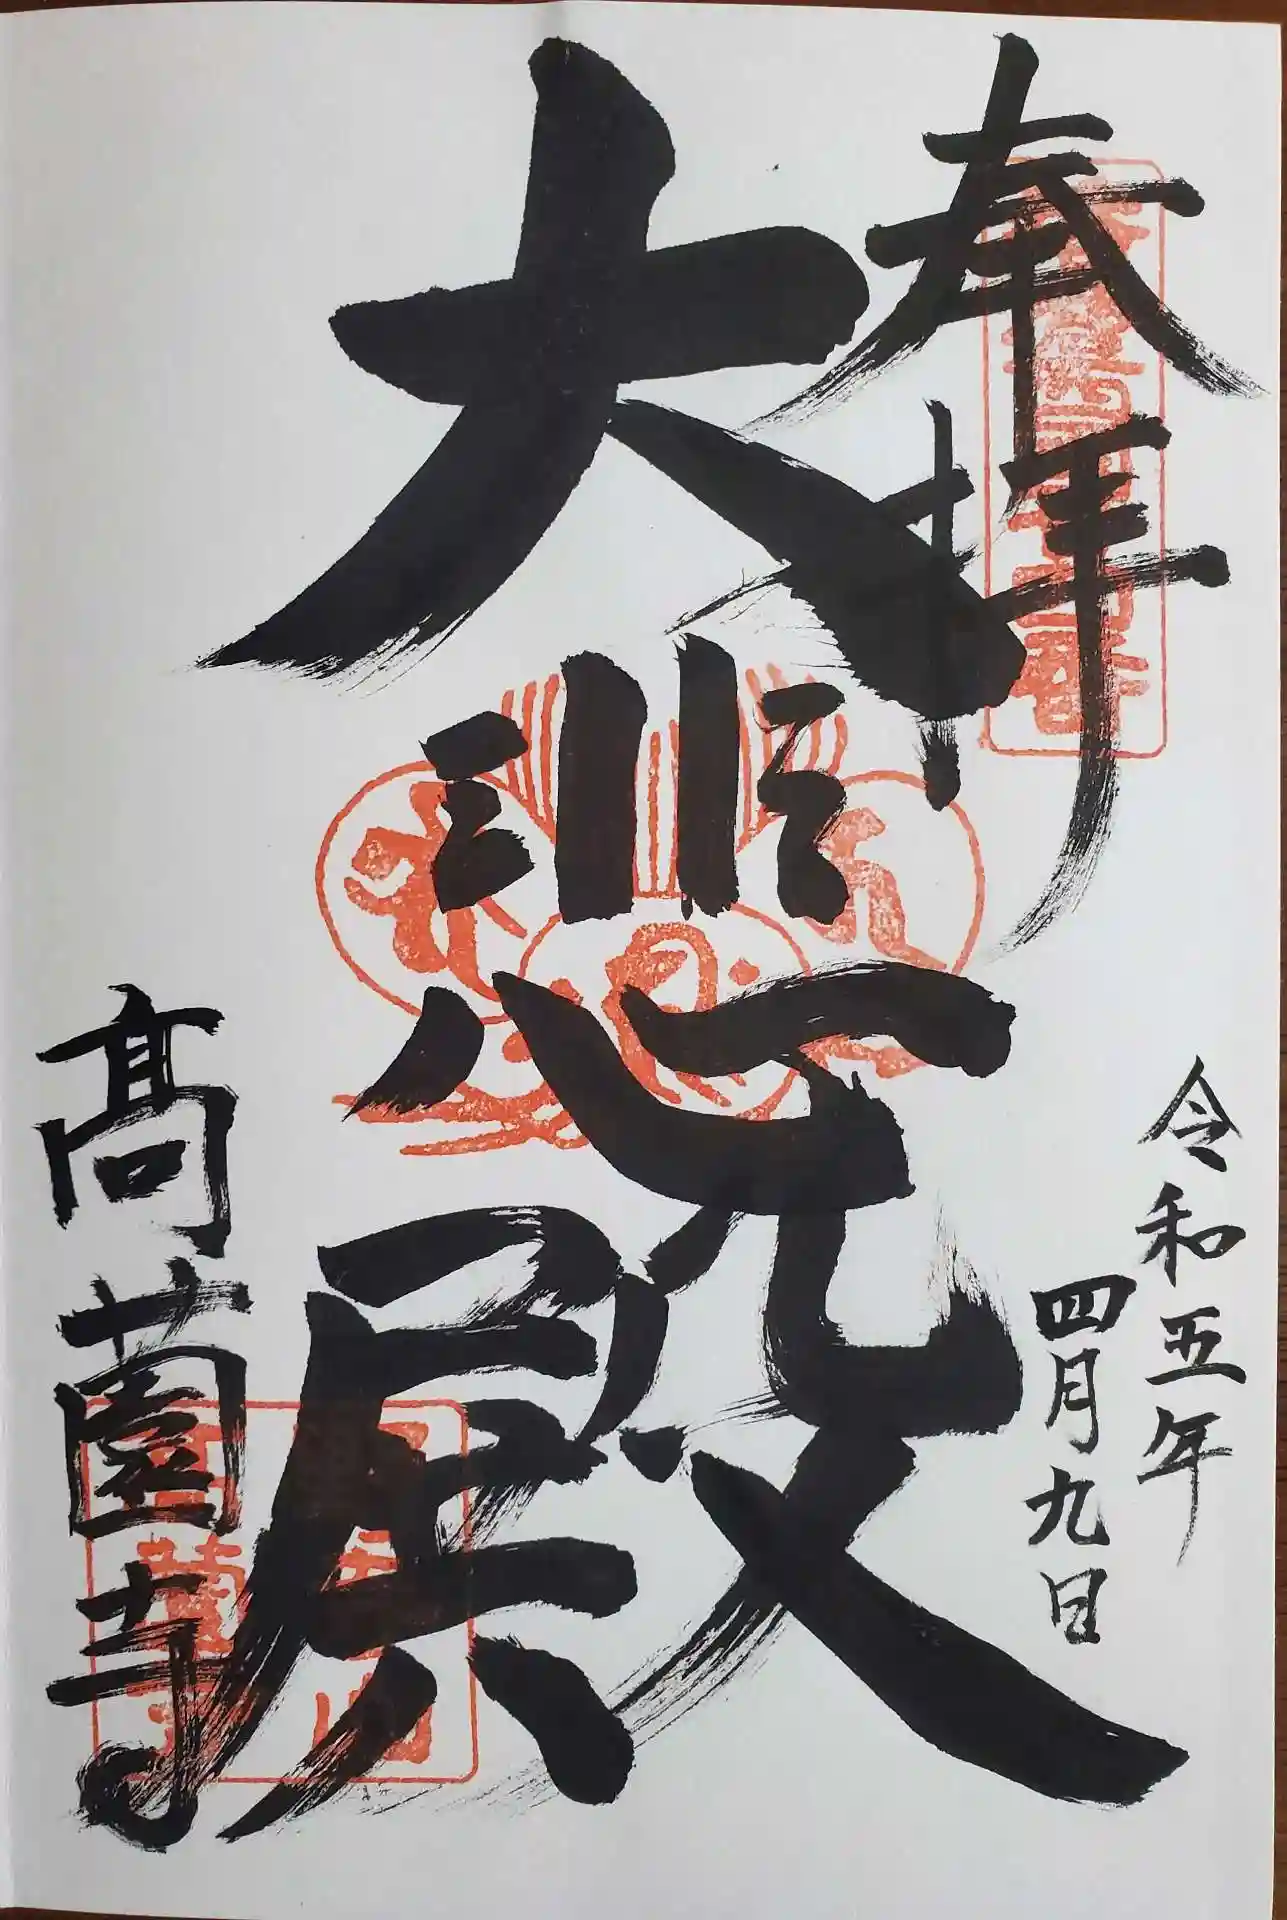 奉拝
令和五年
四月九日
大悲殿
高薗寺